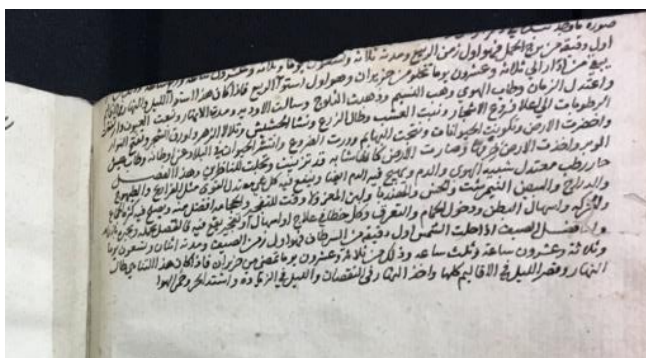 صورة ما
اول دقيقة من برج الحمل فهو اول زمن الربيع ومدته ثلاثة وتسعون يوما وثلاثة وعشرون ساعة وربع ساعة
يبقى من اذار الى ثلاثة وعشرون يوما تخلو من حزيران وهو اول استوا الربيع فاذا كان هذا استوا الليل والنهار
واعتدل الزمان وطاب الهوى وهب النسيم وذهبت الثلوج وسالت الاودية ومدت الانهار ونبعت العيون وارتفعت
الرطوبات الى اعلا فروع الاشجار ونبت العشب وطال الزرع ونشا الحشيش وتلالا الزهر واورق الشجر وفتح النوار
واخضرت الارض وتكونت الحيوانات ونتجت البهايم ودرت الضروع وانتشر الحيوان في البلاد عن اوطانه وطاب عيش
الوبر واخذت الارض زخرفها وصارت الارض كانها شابة قد تزينت وتحلت للناظرين وهذا الفصل
حار رطب معتدل شبيه الهوى والدم ويهيج فيه الدم ايضا وينفع فيه كل شي معتدل القوى مثل الفراريج والطيهوج
والدراج والبيض النيمرشت والخس والهندبا ولبن المعز وهو وقت للفصد والحجامة افضل منه ويصلح فيه كثرة الجماع
والحركة واسهال البطن ودخول الحمام والتعرق وكل خطا في علاج او اسهال او
واما فصل الصيف اذا حلت الشمس اول دقيقة من السرطان فهو اول زمن الصيف ومدته اثنان وتسعون يوما
وثلاثة وعشرون ساعة وثلث ساعة وذلك من ثلاثة وعشرون يوما تمضي من حزيران فاذا كان هذا التناهي طال
النهار وقصر الليل في الاقاليم كلها واخذ النهار في النقصان والليل في الزيادة واشتد الحر وحمى الهوا